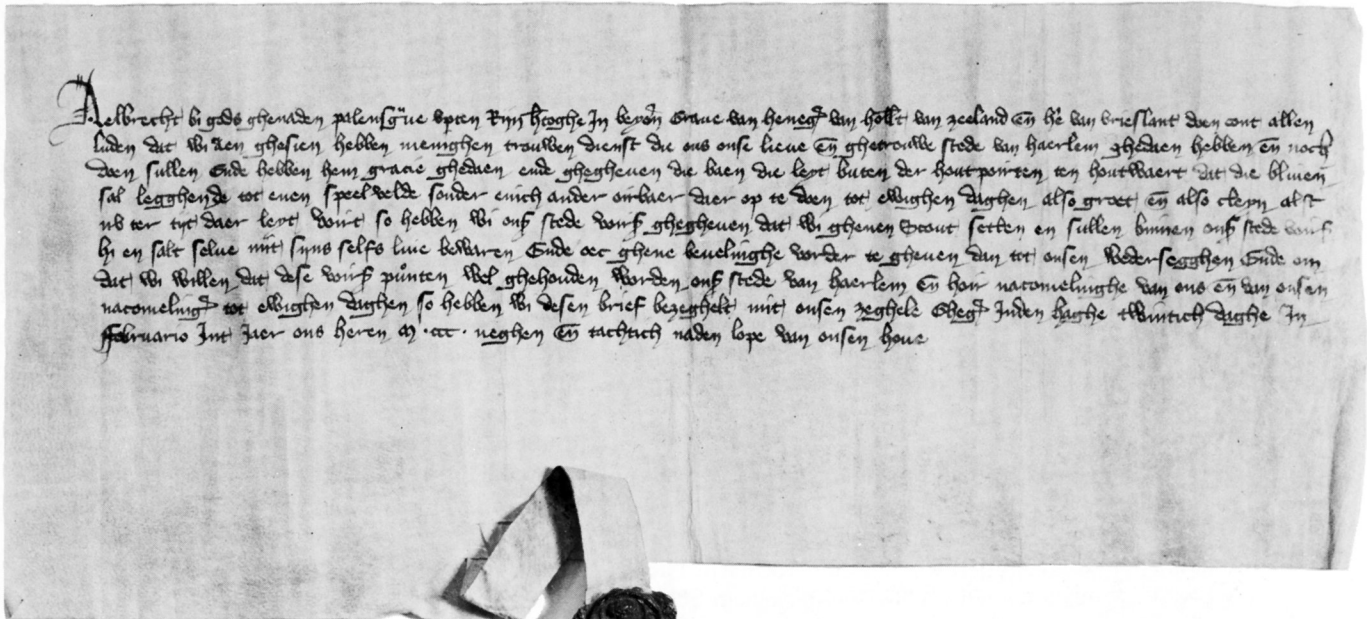 Aelbrecht bi gods ghenaden palensgve vpten Rijn htoghe In beyern Graue van heneg van hollt van zeeland en he van vrieslant doen cont allen
luden dat wi aen ghesien hebben menighen trouwen dienst die ons onse lieue en ghetrouwe stede van haerlem ghedaen hebben en noch
doen sullen Ende hebben hem gracie ghedaen ende ghegheuen die baen die leyt buten der houtpoirten ten houtwaert dat die bliuen
sal legghende tot enen speelvelde sonder enich ander oirbaer daer op te doen tot ewighen daghen also groet en also cleyn als
nv ter tijt daer leyt voirt so hebben wi ons stede voirs ghegheuen dat wi ghenen Scout setten en sullen binnen ons stede voirs
hi en salt selue mit sijns selfs liue bewaren Ende oec ghene beuelinghe vorder te gheuen dan tot onsen wedersegghen Ende om
dat wi willen dat dese voirs punten wel ghehouden worden ons stede van haerlem en hoir nacomelinghe van ons en van onsen
nacomeling tot ewighen daghen so hebben wi desen brief bezeghelt mit onsen zeghele Gheg Inden haghe twintich daghe In
ffebruario Int Jaer ons heren M ccc neghen en tachtich naden lope van onsen houe